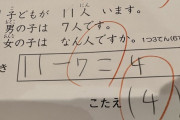 子どもが 11人 います。
男の子は 7人です。
女の子は なん人ですか。
き 11-7=4
こたえ (4)